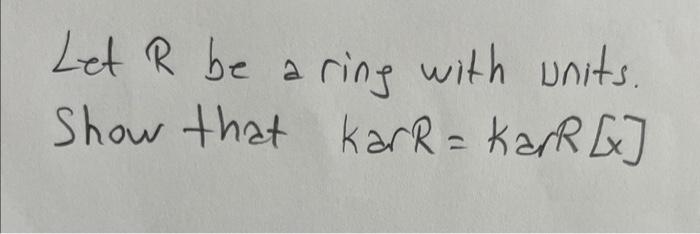 Let R be a ring with units.
Show that karR = karR[x]